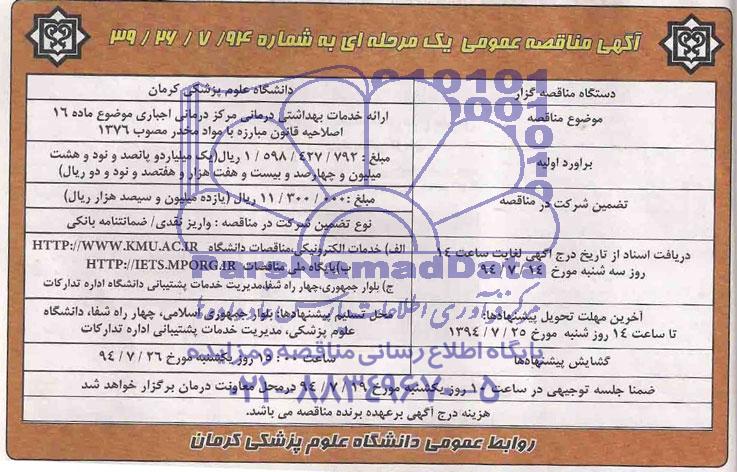 آگهی مناقصه عمومی یک مرحله ای به شماره ۹۴/ ۷ / ۲۶ / ۳۹
دستگاه مناقصه گزار
دانشگاه علوم پزشکی کرمان
موضوع مناقصه
ارائه خدمات بهداشتی درمانی مرکز درمانی اجباری موضوع ماده ۱۶
اصلاحیه قانون مبارزه با مواد مخدر مصوب ۱۳۷۶
براورد اولیه
مبلغ : ۷۹۲ / ۴۲۷ / ۵۹۸ / ۱ ریال(یک میلیاردو پانصد و نود و هشت
میلیون و چهارصد و بیست و هفت هزار و هفتصد و نود و دو ریال)
تضمین شرکت در مناقصه
مبلغ : ۰۰۰ / ۳۰۰ / ۱۱ ریال (یازده میلیون و سیصد هزار ریال)
نوع تضمین شرکت در مناقصه : واریز نقدی/ ضمانتنامه بانکی
دریافت اسناد از تاریخ درج آگهی لغایت ساعت ۱۴
روز سه شنبه مورخ ۱۴ / ۷ / ۹۴
الف) خدمات الکترونیکی،مناقصات دانشگاه HTTP://WWW.KMU.AC.IR
ب)پایگاه ملی مناقصات HTTP://IETS.MPORG.IR
ج) بلوار جمهوری،چهار راه شفا،مدیریت خدمات پشتیبانی دانشگاه اداره تدارکات
آخرین مهلت تحویل پیشنهادها:
تا ساعت ۱۴ روز شنبه مورخ ۲۵ / ۷ / ۱۳۹۴
محل تسلیم پیشنهادها: بلوار جمهوری اسلامی، چهار راه شفا، دانشگاه
علوم پزشکی، مدیریت خدمات پشتیبانی اداره تدارکات
گشایش پیشنهادها
روز یکشنبه مورخ ۲۶ / ۷ / ۹۴
ضمنا جلسه توجیهی در ساعت ۱۰ روز یکشنبه مورخ ۱۹ / ۷ / ۹۴ درمحل معاونت درمان برگزار خواهد شد
هزینه درج آگهی برعهده برنده مناقصه می باشد.
روابط عمومی دانشگاه علوم پزشکی کرمان
ParsNamadData
پایگاه اطلاع رسانی مناقصه و مزایده
۰۲۱-۸۸۳۴۹۶۷۰-۵